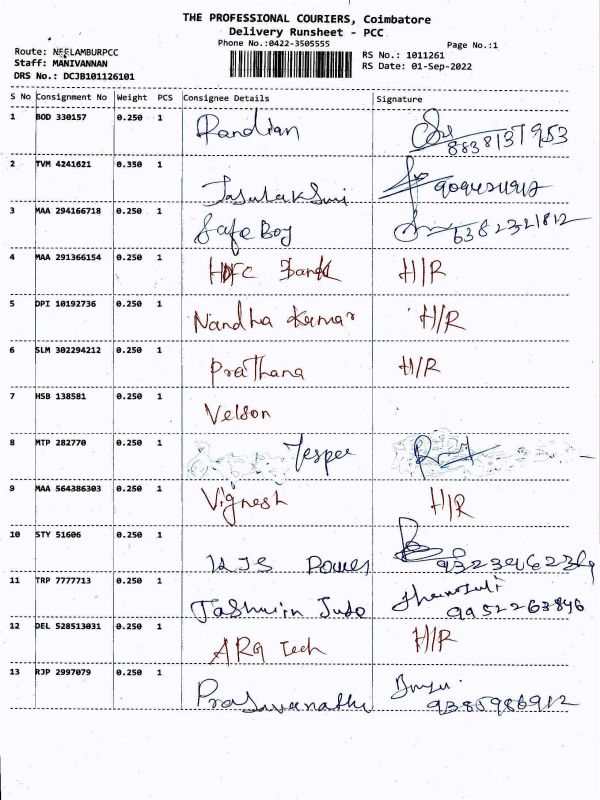 THE PROFESSIONAL COURIERS, Coimbatore
Delivery Runsheet - PCC
Phone No.:0422-3505555
Page No.:1
Route: NEELAMBURPCC
Staff: MANIVANNAN
DRS No.: DCJB101126101
RS No.: 1011261
RS Date: 01-Sep-2022
S No Consignment No Weight PCS Consignee Details Signature
1 BOD 330157 0.250 1 Pandian 8838137953
2 TVM 4241621 0.350 1
3 MAA 294166718 0.250 1 Safe Boy 6382321812
4 MAA 291366154 0.250 1 HDFC Bank H/R
5 DPI 10192736 0.250 1 Nandha Kumar H/R
6 SLM 302294212 0.250 1 Prathana H/R
7 HSB 138581 0.250 1 Velson
8 MTP 282770 0.250 1 Jesper
9 MAA 564386303 0.250 1 Vignesh H/R
10 STY 51606 0.250 1 Power
11 TRP 7777713 0.250 1 9952263846
12 DEL 528513031 0.250 1 ARG Tech H/R
13 RJP 2997079 0.250 1 9385986912